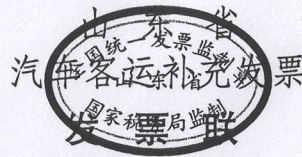 山东省
汽车客运补充发票
发票联
全国统一发票监制章
山东省
国家税务局监制